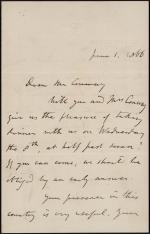 June 1. 1866
Dear Mr Conway
Will you and Mrs Conway
give us the pleasure of taking
dinner with us on Wednesday
the 6th, at half past seven?
If you can come, we should be
obliged by an early answer.
Your presence in this
country is very useful. Your